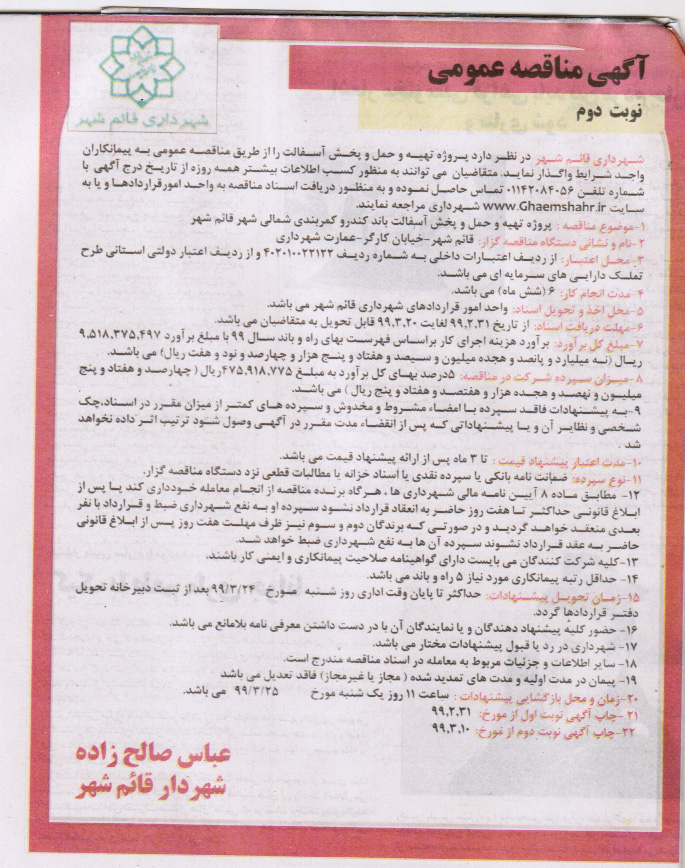 آگهی مناقصه عمومی
نوبت دوم
شهرداری قائم شهر
شهرداری قائم شهر در نظر دارد پروژه تهیه و حمل و پخش آسفالت را از طریق مناقصه عمومی به پیمانکاران
واجد شرایط واگذار نماید. متقاضیان می توانند به منظور کسب اطلاعات بیشتر همه روزه از تاریخ درج آگهی با
شماره تلفن ۰۱۱۴۲۰۸۴۰۵۶ تماس حاصل نموده و به منظور دریافت اسناد مناقصه به واحد امور قراردادها و یا به
سایت www.Ghaemshahr.ir شهرداری مراجعه نمایند.
۱-موضوع مناقصه : پروژه تهیه و حمل و پخش آسفالت باند کندرو کمربندی شمالی شهر قائم شهر
۲-نام و نشانی دستگاه مناقصه گزار: قائم شهر-خیابان کارگر-عمارت شهرداری
۳-محل اعتبار: از ردیف اعتبارات داخلی به شماره ردیف ۴۰۲۰۱۰۰۲۲۱۲۲ و از ردیف اعتبار دولتی استانی طرح
تملک دارایی های سرمایه ای می باشد.
۴-مدت انجام کار: ۶ (شش ماه) می باشد.
۵-محل اخذ و تحویل اسناد: واحد امور قراردادهای شهرداری قائم شهر می باشد.
۶-مهلت دریافت اسناد: از تاریخ ۹۹،۲،۳۱ لغایت ۹۹،۳،۲۰ قابل تحویل به متقاضیان می باشد.
۷-مبلغ کل برآورد: برآورد هزینه اجرای کار براساس فهرست بهای راه و باند سال ۹۹ با مبلغ برآورد ۹،۵۱۸،۳۷۵،۴۹۷
ریال (نه میلیارد و پانصد و هجده میلیون و سیصد و هفتاد و پنج هزار و چهارصد و نود و هفت ریال) می باشد.
۸-میزان سپرده شرکت در مناقصه: ۵درصد بهای کل برآورد به مبلغ ۴۷۵،۹۱۸،۷۷۵ریال ( چهارصد و هفتاد و پنج
میلیون و نهصد و هجده هزار و هفتصد و هفتاد و پنج ریال ) می باشد.
۹-به پیشنهادات فاقد سپرده با امضاء مشروط و مخدوش و سپرده های کمتر از میزان مقرر در اسناد،چک
شخصی و نظایر آن و یا پیشنهاداتی که پس از انقضاء مدت مقرر در آگهی وصول شود ترتیب اثر داده نخواهد
شد .
۱۰-مدت اعتبار پیشنهاد قیمت : تا ۳ ماه پس از ارائه پیشنهاد قیمت می باشد.
۱۱-نوع سپرده: ضمانت نامه بانکی یا سپرده نقدی یا اسناد خزانه یا مطالبات قطعی نزد دستگاه مناقصه گزار.
۱۲- مطابق ماده ۸ آیین نامه مالی شهرداری ها ، هرگاه برنده مناقصه از انجام معامله خودداری کند یا پس از
ابلاغ قانونی حداکثر تا هفت روز حاضر به انعقاد قرارداد نشود سپرده او به نفع شهرداری ضبط و قرارداد با نفر
بعدی منعقد خواهد گردید و در صورتی که برندگان دوم و سوم نیز ظرف مهلت هفت روز پس از ابلاغ قانونی
حاضر به عقد قرارداد نشوند سپرده آن ها به نفع شهرداری ضبط خواهد شد.
۱۳-کلیه شرکت کنندگان می بایست دارای گواهینامه صلاحیت پیمانکاری و ایمنی کار باشند.
۱۴- حداقل رتبه پیمانکاری مورد نیاز ۵ راه و باند می باشد.
۱۵-زمان تحویل پیشنهادات: حداکثر تا پایان وقت اداری روز شنبه مورخ ۹۹/۳/۲۴ بعد از ثبت دبیرخانه تحویل
دفتر قراردادها گردد.
۱۶- حضور کلیه پیشنهاد دهندگان و یا نمایندگان آن با در دست داشتن معرفی نامه بلامانع می باشد.
۱۷- شهرداری در رد یا قبول پیشنهادات مختار می باشد.
۱۸- سایر اطلاعات و جزئیات مربوط به معامله در اسناد مناقصه مندرج است.
۱۹- پیمان در مدت اولیه و مدت های تمدید شده ( مجاز یا غیرمجاز) فاقد تعدیل می باشد
۲۰-زمان و محل بازگشایی پیشنهادات : ساعت ۱۱ روز یک شنبه مورخ ۹۹/۳/۲۵ می باشد.
۲۱ -چاپ آگهی نوبت اول از مورخ: ۹۹،۲،۳۱
۲۲-چاپ آگهی نوبت دوم از مورخ: ۹۹،۳،۱۰
عباس صالح زاده
شهردار قائم شهر